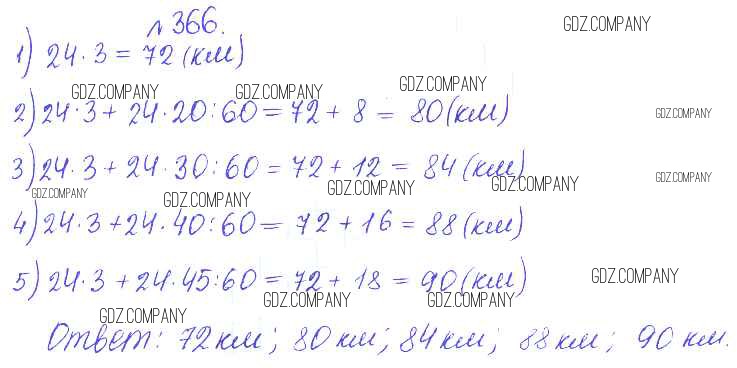 №366.
GDZ.COMPANY
1) 24·3=72(км)
GDZ.COMPANY GDZ.COMPANY GDZ.COMPANY
2) 24·3+24·20:60=72+8=80(км)
GDZ.COMPANY
3) 24·3+24·30:60=72+12=84(км)
GDZ.COMPANY GDZ.COMPANY GDZ.COMPANY GDZ.COMPANY GDZ.COMPANY
4) 24·3+24·40:60=72+16=88(км)
5) 24·3+24·45:60=72+18=90(км)
GDZ.COMPANY
GDZ.COMPANY GDZ.COMPANY GDZ.COMPANY
Ответ: 72км; 80км; 84км; 88км; 90км.